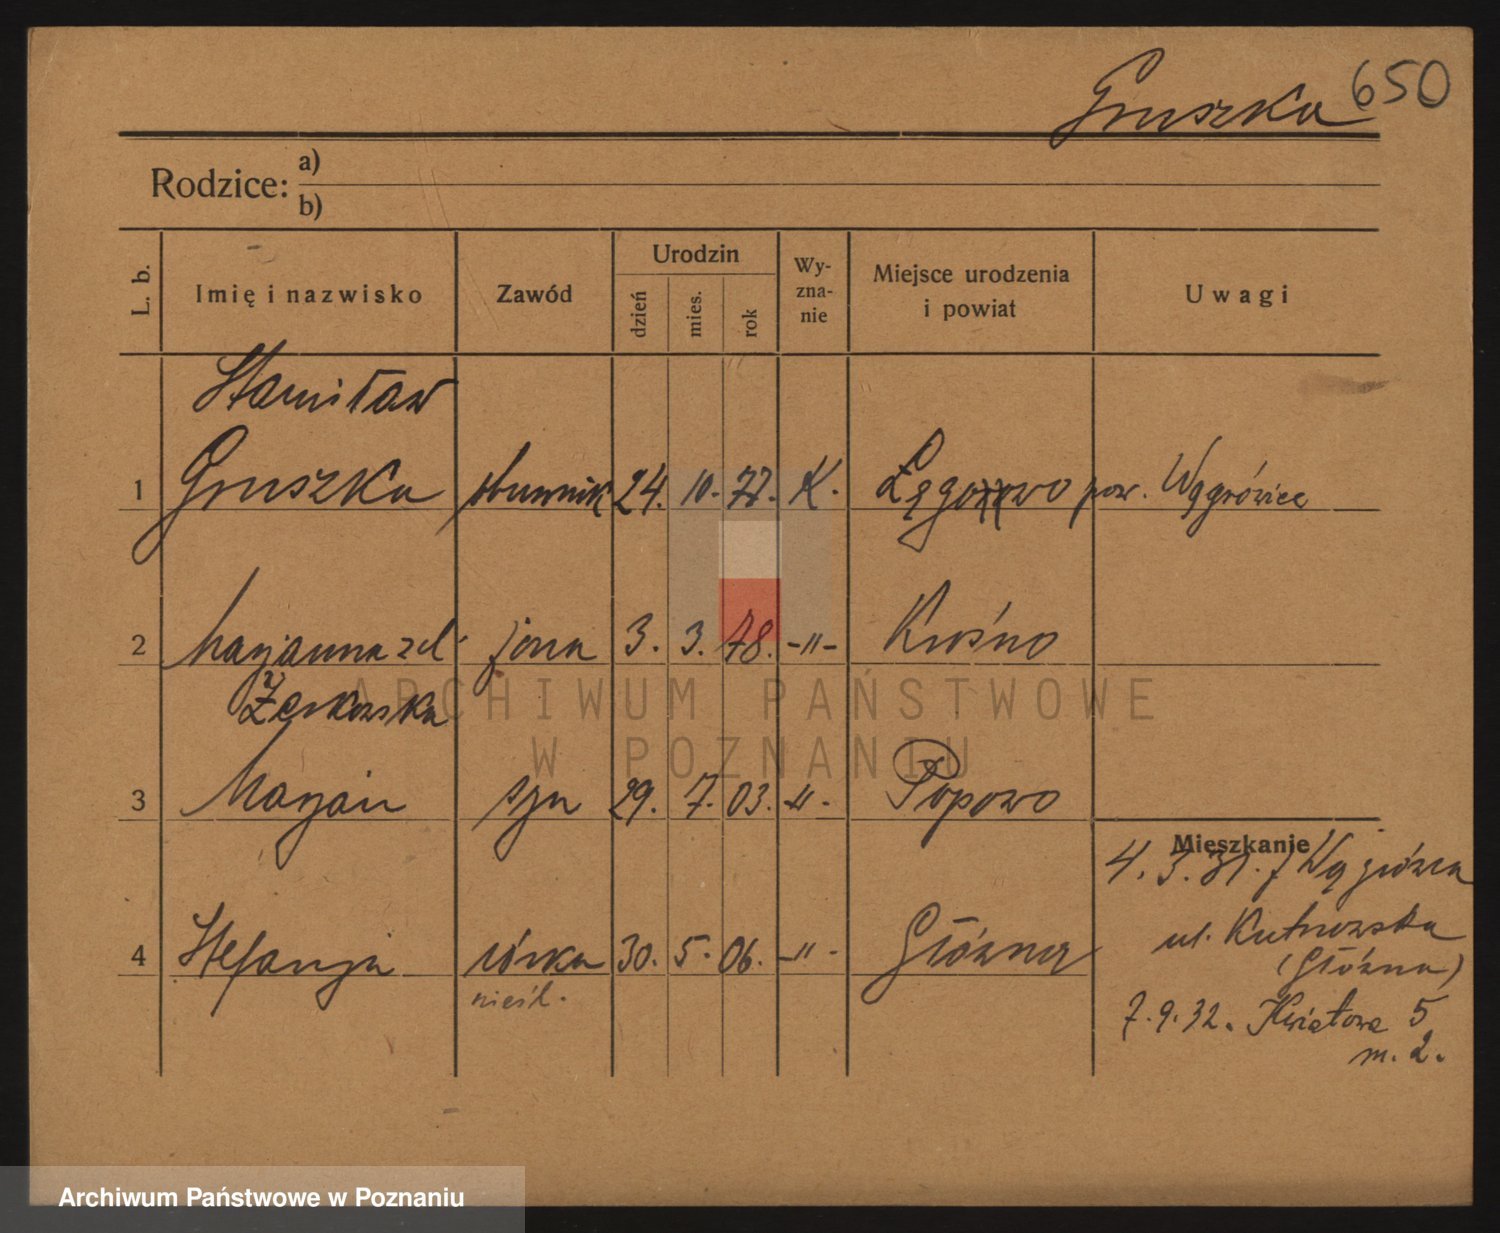 Gruszka 650
Rodzice: a)
b)
L. b.
Imię i nazwisko
Zawód
Urodzin
dzień
mies.
rok
Wy-
zna-
nie
Miejsce urodzenia
i powiat
Uwagi
Stanisław
1 Gruszka 24. 10. 77. K. pow.
2 Maryanna zd. żona 3. 3. 78. -"- Krośno
Żerkowska
3 Maryan syn 29. 7. 03. -"- Popowo
Mieszkanie
4. 3. 31. z
4 Stefanja córka 30. 5. 06. -"- Główna
nieśl.
ul. Kutnowska
(Główna)
7. 9. 32. Kwiatowa 5
m. 2.
ARCHIWUM PAŃSTWOWE
W POZNANIU
Archiwum Państwowe w Poznaniu